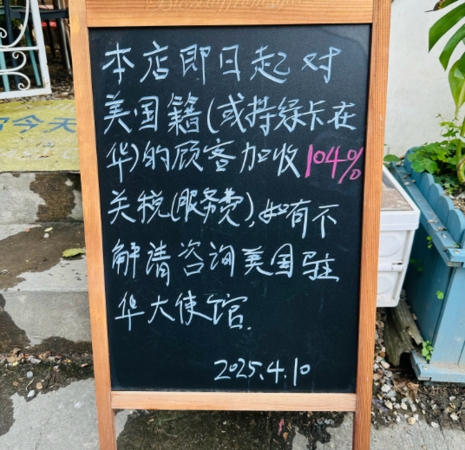 本店即日起 对
美国籍(或持绿卡在
华)的顾客加收104%
关税(服务费),如有不
解请咨询美国驻
华大使馆.
2025.4.10
今天